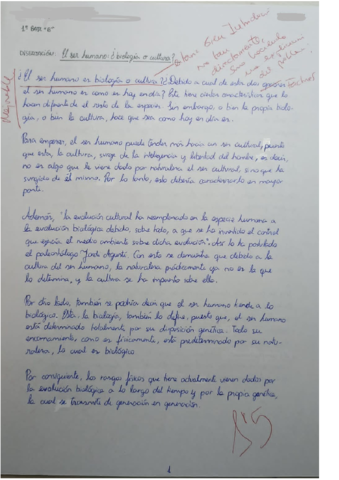 1º BACH "B"
DISERTACIÓN: El ser humano: ¿biología o cultura?
¿El ser humano es biología o cultura? ¿Debido a cual de estos dos
el ser humano es como es hoy en día? Este tiene varias características que lo
hacen diferente del resto de la especie. Sin embargo, o bien la propia biolo-
gía, o bien la cultura, hace que sea como hoy en día es.
Para empezar, el ser humano puede tender más hacia un ser cultural, puesto
que esta, la cultura, surge de la inteligencia y libertad del hombre, es decir,
no es algo que le viene dado por naturaleza al ser cultural, sino que ha
surgido de él mismo. Por lo tanto, esto debería caracterizarlo en mayor
parte.
Además, "la evolución cultural ha reemplazado en la especie humana a
la evolución biológica debido, sobre todo, a que se ha invertido el control
que ejercía el medio ambiente sobre dicha evolución". Así lo ha
el paleontólogo Jordi Agustí. Con esto se demuestra que debido a la
cultura del ser humano, la naturaleza prácticamente ya no es la que
lo determina, y la cultura se ha impuesto sobre ella.
Por otro lado, también se podría decir que el ser humano tiende a lo
biológico. Esta, la biología, también lo define, puesto que, el ser humano
está determinado totalmente por su disposición genética. Todo su
como es físicamente, está predeterminado por su natu-
raleza, la cual es biológica.
Por consiguiente, los rasgos físicos que tiene actualmente vienen dados por
la evolución biológica a lo largo del tiempo y por la propia genética,
la cual se transmite de generación en generación.
1